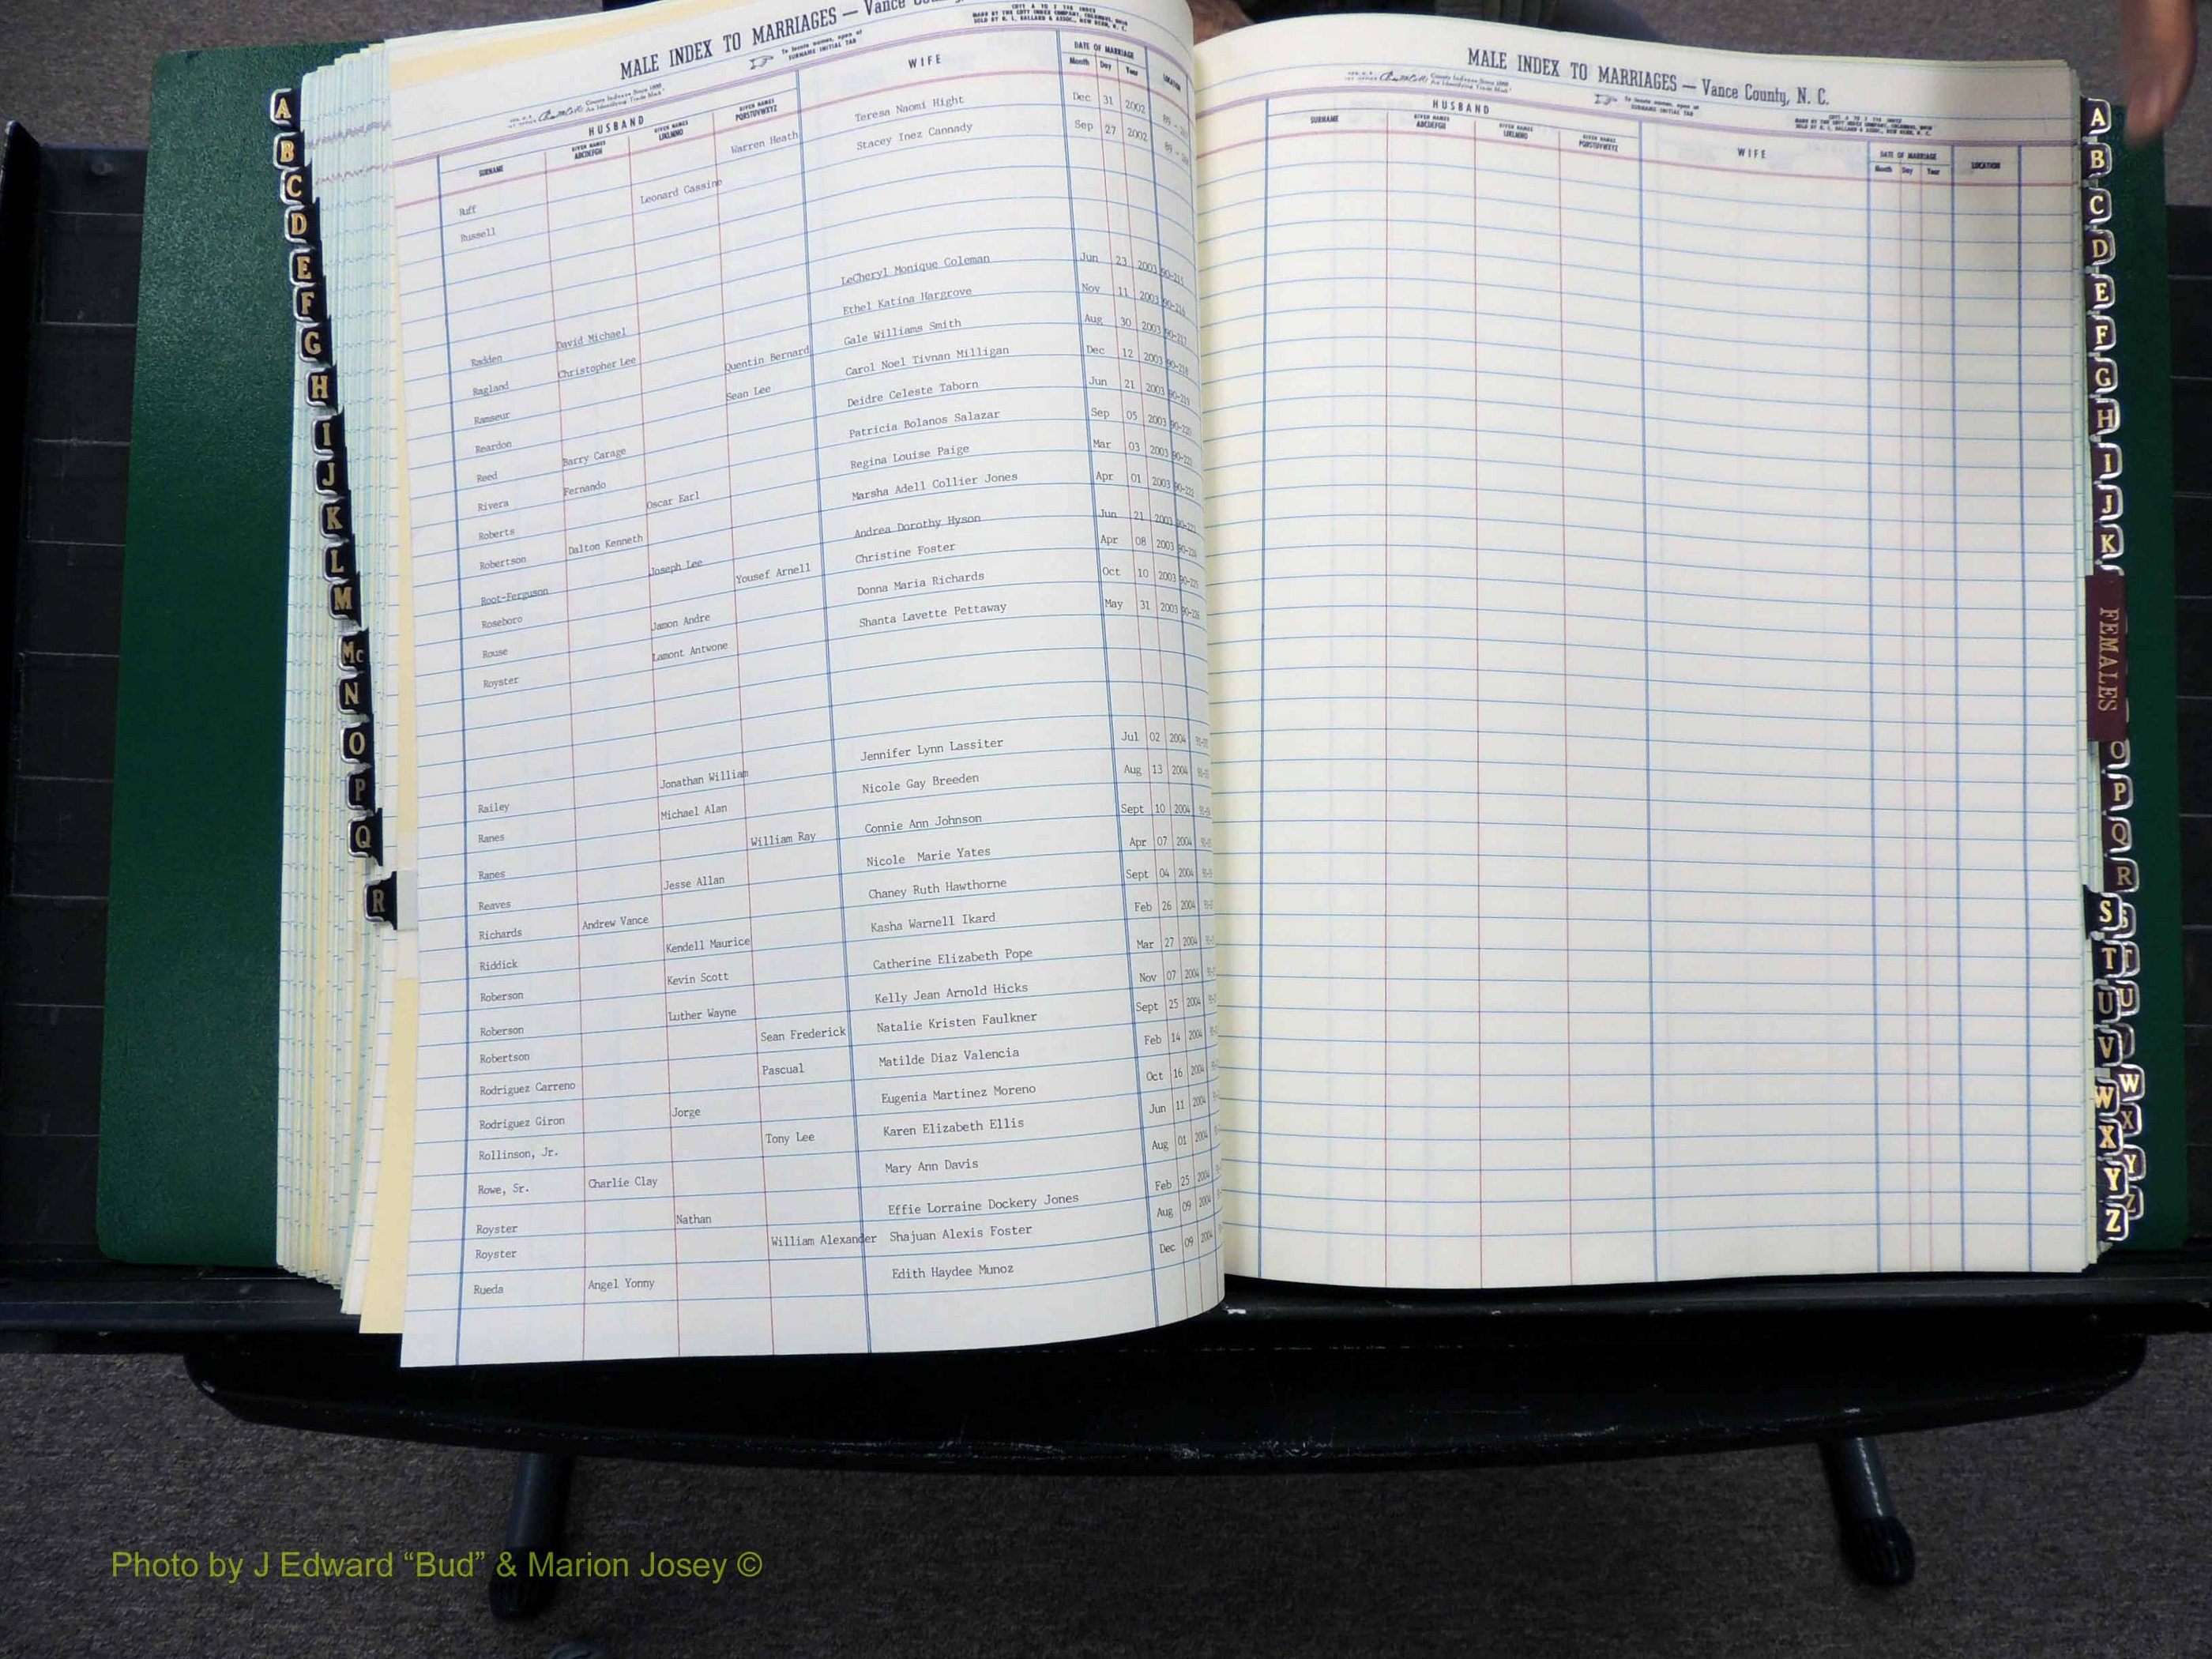 MALE INDEX TO MARRIAGES — Vance
HUSBAND WIFE DATE OF MARRIAGE LOCATION
SURNAME GIVEN NAMES ABCDEFGH GIVEN NAMES IJKLMNO GIVEN NAMES PQRSTUVWXYZ Month Day Year
To locate names, open at SURNAME INITIAL TAB
Ruff Warren Heath Teresa Naomi Hight Dec 31 2002
Russell Leonard Cassine Stacey Inez Cannady Sep 27 2002
Radden David Michael LeCheryl Monique Coleman Jun 23 2003 90-215
Ragland Christopher Lee Ethel Katina Hargrove Nov 11 2003 90-216
Ramseur Quentin Bernard Gale Williams Smith Aug 30 2003 90-217
Reardon Sean Lee Carol Noel Tivnan Milligan Dec 12 2003 90-218
Reed Barry Carage Deidre Celeste Taborn Jun 21 2003 90-219
Rivera Fernando Patricia Bolanos Salazar Sep 05 2003 90-220
Roberts Oscar Earl Regina Louise Paige Mar 03 2003 90-221
Robertson Dalton Kenneth Marsha Adell Collier Jones Apr 01 2003 90-222
Root-Ferguson Joseph Lee Andrea Dorothy Hyson Jun 21 2003 90-223
Roseboro Yousef Arnell Christine Foster Apr 08 2003 90-224
Rouse Jamon Andre Donna Maria Richards Oct 10 2003 90-225
Royster Lamont Antwone Shanta Lavette Pettaway May 31 2003 90-226
Railey Jonathan William Jennifer Lynn Lassiter Jul 02 2004
Ranes Michael Alan Nicole Gay Breeden Aug 13 2004
Ranes William Ray Connie Ann Johnson Sept 10 2004
Reaves Jesse Allan Nicole Marie Yates Apr 07 2004
Richards Andrew Vance Chaney Ruth Hawthorne Sept 04 2004
Riddick Kendell Maurice Kasha Warnell Ikard Feb 26 2004
Roberson Kevin Scott Catherine Elizabeth Pope Mar 27 2004
Roberson Luther Wayne Kelly Jean Arnold Hicks Nov 07 2004
Robertson Sean Frederick Natalie Kristen Faulkner Sept 25 2004
Rodriguez Carreno Pascual Matilde Diaz Valencia Feb 14 2004
Rodriguez Giron Jorge Eugenia Martinez Moreno Oct 16 2004
Rollinson, Jr. Tony Lee Karen Elizabeth Ellis Jun 11 2004
Rowe, Sr. Charlie Clay Mary Ann Davis Aug 01 2004
Royster Nathan Effie Lorraine Dockery Jones Feb 25 2004
Royster William Alexander Shajuan Alexis Foster Aug 09 2004
Rueda Angel Yonny Edith Haydee Munoz Dec 09 2004
MALE INDEX TO MARRIAGES — Vance County, N. C.
To locate names, open at SURNAME INITIAL TAB
HUSBAND
SURNAME GIVEN NAMES ABCDEFGH GIVEN NAMES IJKLMNO GIVEN NAMES PQRSTUVWXYZ WIFE DATE OF MARRIAGE LOCATION
Month Day Year
A
B
C
D
E
F
G
H
I
J
K
L
M
Mc
N
O
P
Q
R
A
B
C
D
E
F
G
H
I
J
K
FEMALES
O
P
Q
R
S S
T T
U U
V
W W
X X
Y Y
Z Z
Photo by J Edward “Bud” & Marion Josey ©